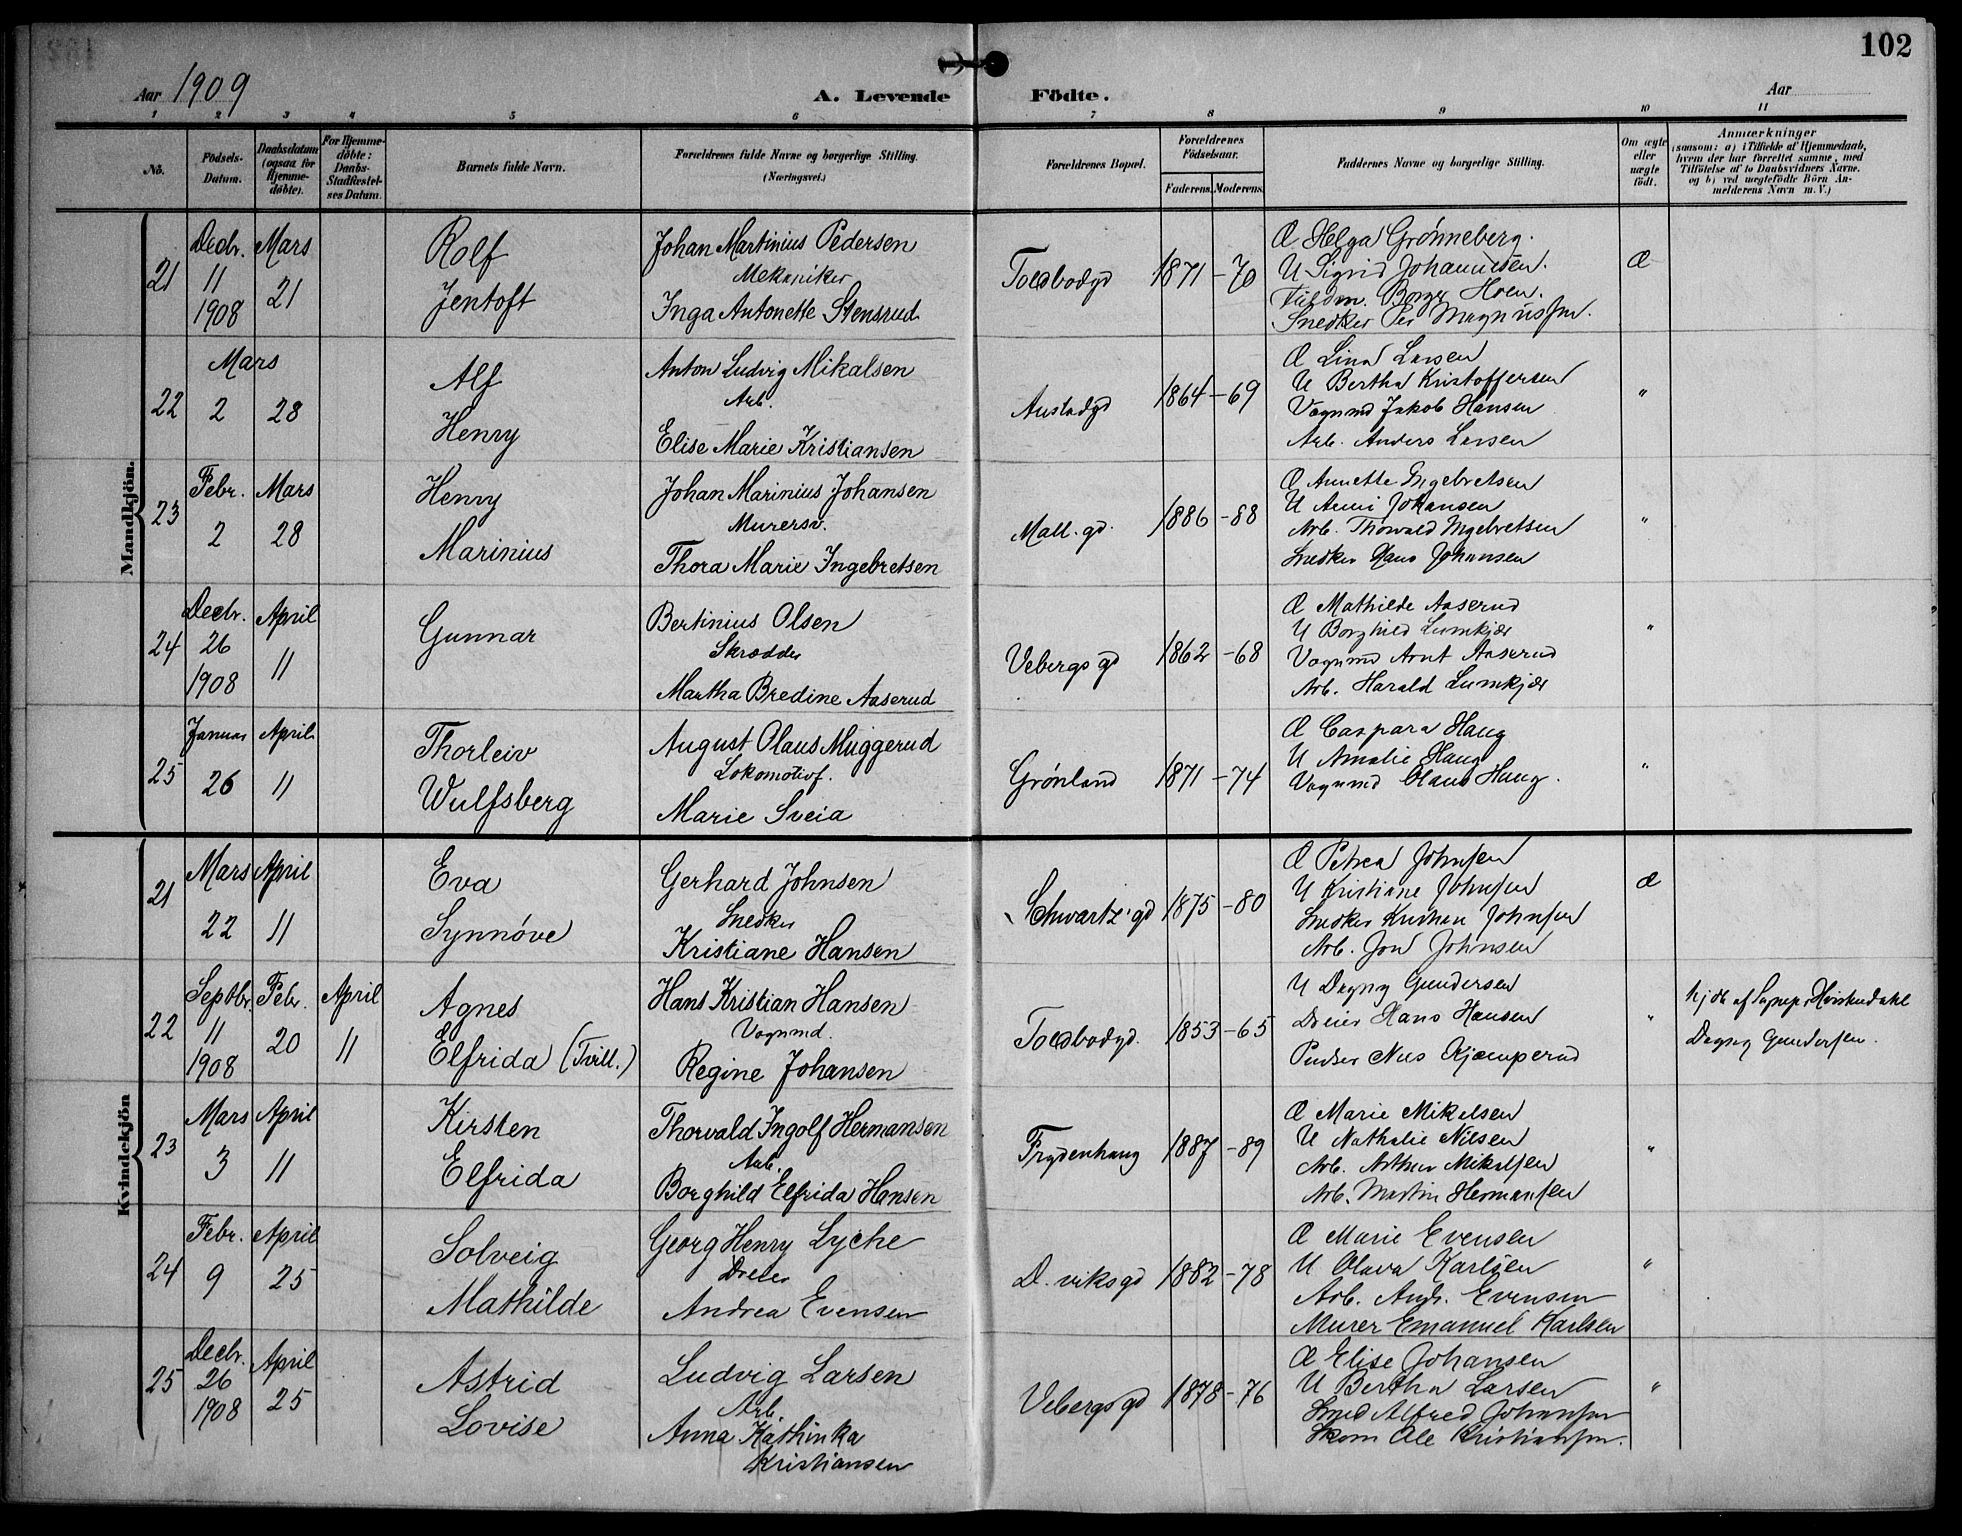 102
Aar 1909
A. Levende Födte.
Aar
1 2 3 4 5 6 7 8 9 10 11
No.
Födsels-Datum.
Daabsdatum (ogsaa for Hjemme-döbte).
For Hjemme-döbte: Daabs-Stadfæstel-ses Datum.
Barnets fulde Navn.
Forældrenes fulde Navne og borgerlige Stilling. (Næringsvei.)
Forældrenes Bopæl.
Forældrenes Födselsaar.
Faderens. Moderens.
Faddernes Navne og borgerlige Stilling.
Om ægte eller uægte födt.
Anmærkninger
(saasom: a) i Tilfælde af Hjemmedaab,
hvem der har forrettet samme, med
Tilföielse af to Daabsvidners Navne,
og b) ved uægtefödte Börn An-
melderens Navn m. V.)
Mandkjön.
21 Decbr. 11 1908 Mars 21
Rolf
Jentoft
Johan Martinius Pedersen
Mekaniker
Inga Antonette Stensrud
Toldbodgd 1871 - 70
Œ Helga Grønneberg.
U Sigrid Johannesen.
Borger Hoen.
Snedker Per Magnussen.
Æ
22 Mars 2 28
Alf
Henry
Anton Ludvig Mikalsen
Arb.
Elise Marie Kristiansen
Austadgd 1864 - 69
Œ Lina Larsen
U Bertha Kristoffersen
Vognmd Jakob Hansen
Arb. Anders Larsen
"
23 Febr. 2 Mars 28
Henry
Marinius
Johan Marinius Johansen
Murersv.
Thora Marie Ingebretsen
Mall. gd. 1886 - 88
Œ Annette Ingebretsen
U Anni Johansen
Arb. Thorvald Ingebretsen
Snedker Hans Johansen
"
24 Decbr. 26 1908 April 11
Gunnar
Bertinius Olsen
Skrædder
Martha Bredine Aaserud
Vebergs gd 1862 - 68
Œ Mathilde Aaserud
U Borghild Lumkjær
Vognmd Arnt Aaserud
Arb. Harald Lumkjær
"
25 Januar 26 April 11
Thorleiv
Wulfsberg
August Olaus Muggerud
Lokomotivf.
Marie Sveia
Grønland 1871 - 74
Œ Caspara Haug
U Amalie Haug
Vognmd Olaus Haug.
"
Kvindekjön
21 Mars 22 April 11
Eva
Synnöve
Gerhard Johnsen
Snedker
Kristiane Hansen
Schwartz' gd 1875 - 80
Œ Petrea Johnsen
U Kristiane Johnsen
Snedker Kristian Johnsen
Arb. Jon Johnsen
Æ
22 Septbr. 11 1908 Febr. 20 April 11
Agnes
Elfrida (Tvill.)
Hans Kristian Hansen
Vognmd.
Regine Johansen
Toldbodgd. 1853 - 65
U Dagny Gundersen
Dreier Hans Hansen
Pudser Nils Kjæmperud
"
hjdb af Sognepr. Hvistendahl
Dagny Gundersen.
23 Mars 3 April 11
Kirsten
Elfrida
Thorvald Ingolf Hermansen
Arb.
Borghild Elfrida Hansen
Frydenhaug 1887 - 89
Œ Marie Mikalsen
U Nathalie Nilsen
Arb. Arthur Mikalsen
Arb. Martin Hermansen
"
24 Febr. 9 April 25
Solveig
Mathilde
Georg Henry Lyche
Dreier
Andrea Evensen
D. viksgd 1882 - 78
Œ Marie Evensen
U Olava Karlsen
Arb. Andr. Evensen
Murer Emanuel Karlsen
"
25 Decbr. 26 1908 April 25
Astrid
Lovise
Ludvig Larsen
Arb.
Anna Kathinka
Kristiansen
Vebergs gd 1878 - 76
Œ Elise Johansen
U Bertha Larsen
Smed Alfred Johansen
Skom Ole Kristiansen.
"